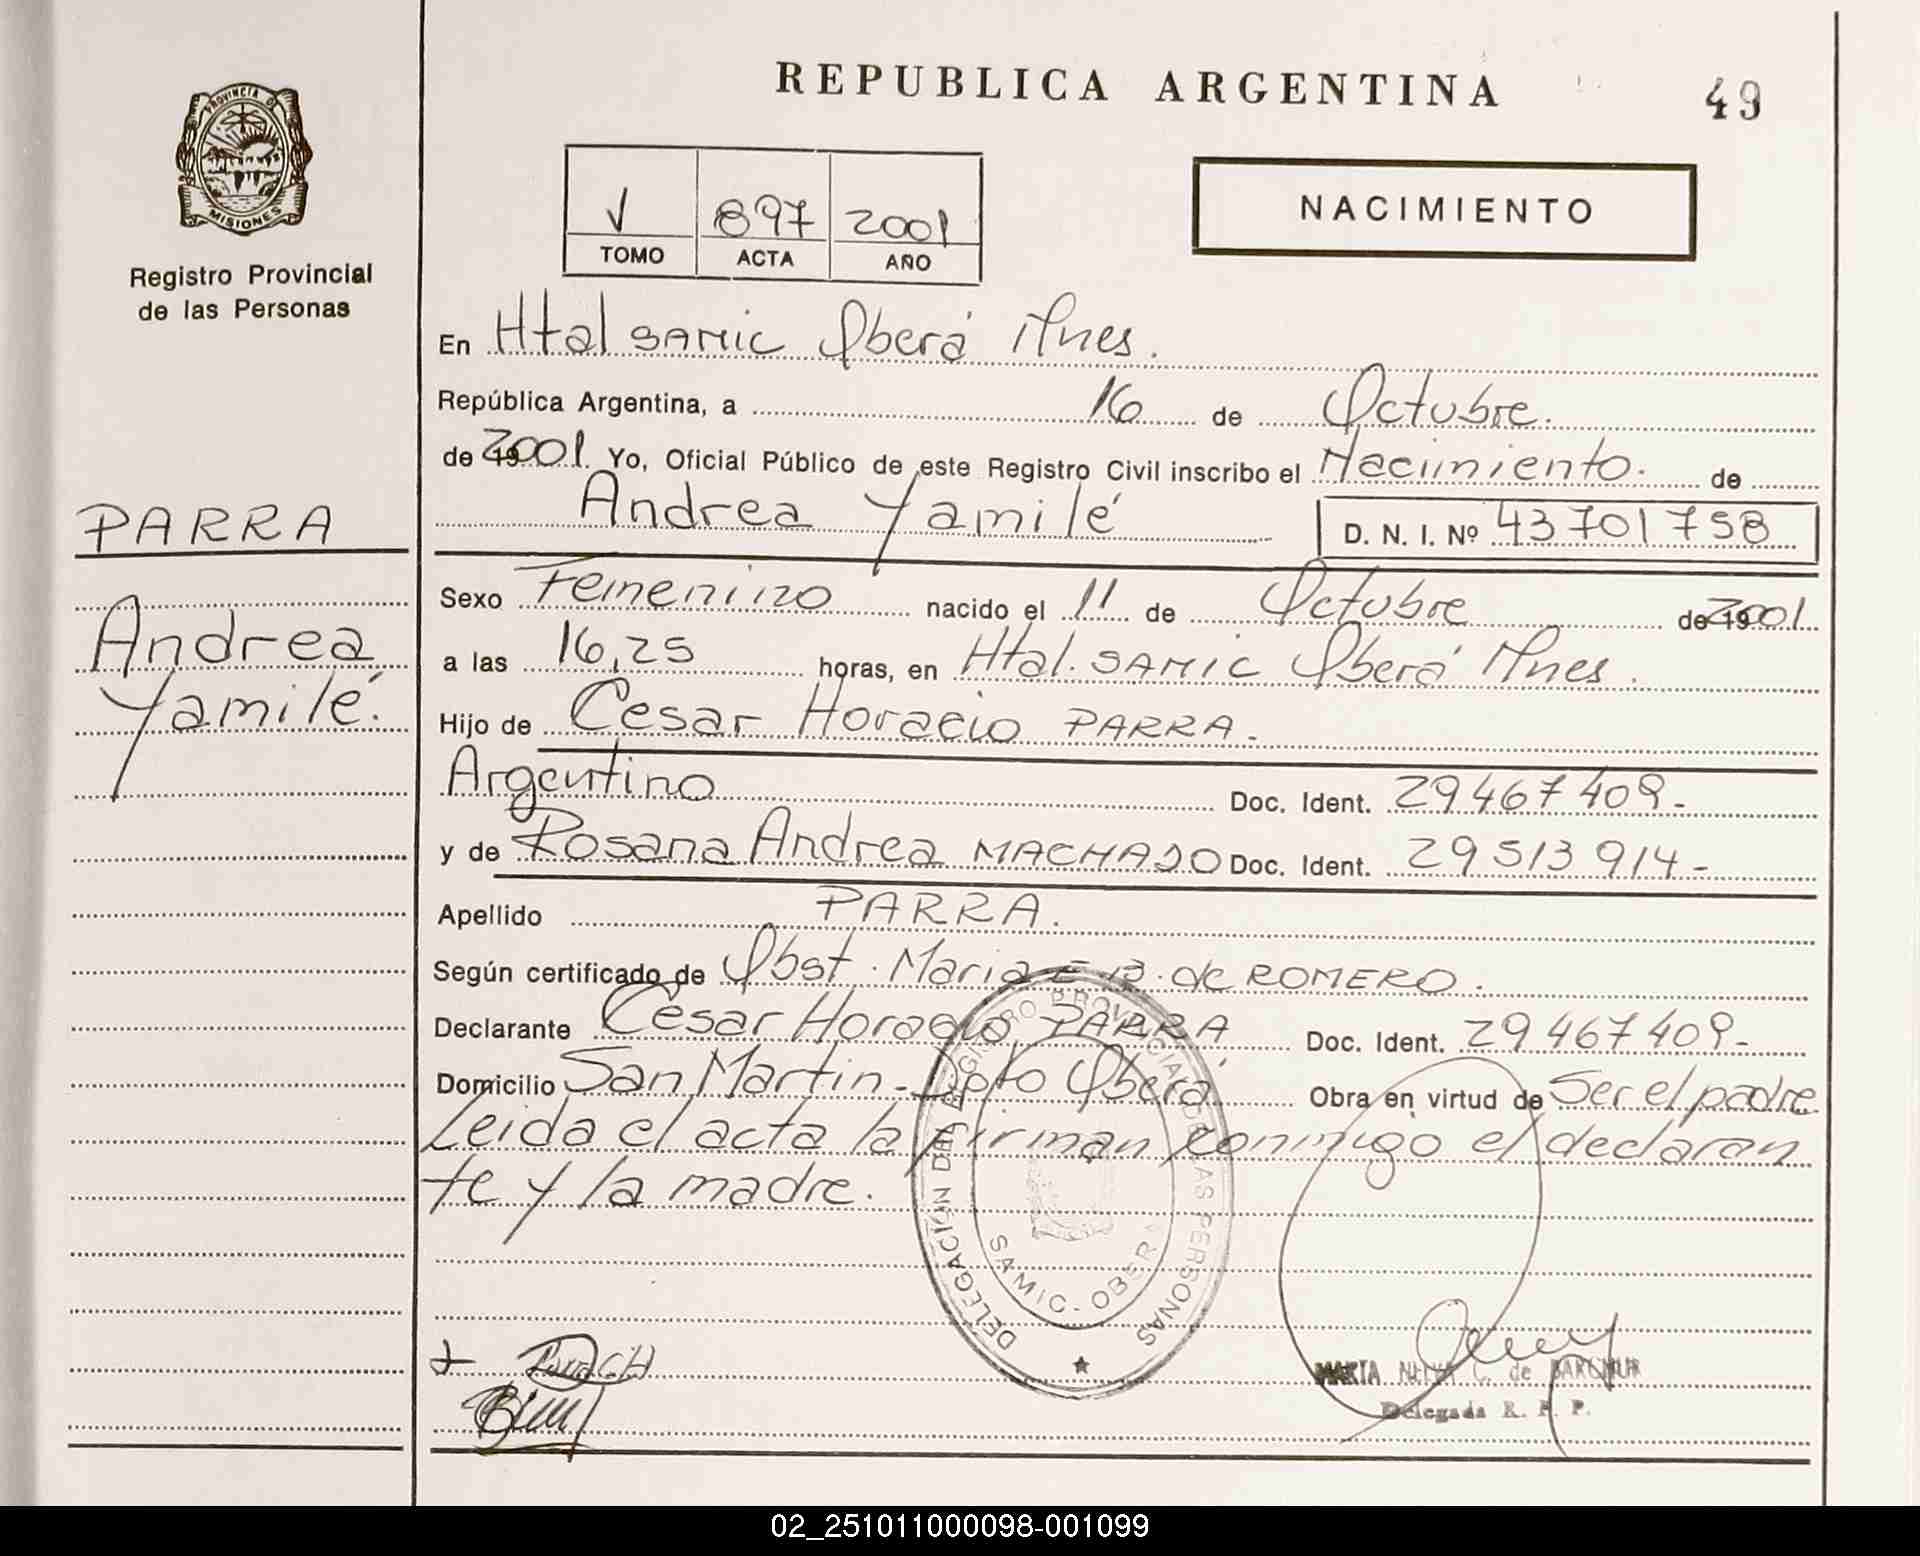 REPUBLICA ARGENTINA
49
PROVINCIA DE
MISIONES
Registro Provincial
de las Personas
V 897 2001
TOMO ACTA AÑO
NACIMIENTO
En Htal SAMIC Oberá Mnes.
República Argentina, a 16 de Octubre.
de 2001 Yo, Oficial Público de este Registro Civil inscribo el Nacimiento. de
Andrea Yamilé D. N. I. Nº 43701758
PARRA
Andrea
Yamilé.
Sexo Femenino nacido el 11 de Octubre de 2001
a las 16,25 horas, en Htal. SAMIC Oberá Mnes.
Hijo de Cesar Horacio PARRA.
Argentino Doc. Ident. 29467409-
y de Rosana Andrea MACHADO Doc. Ident. 29513914-
Apellido PARRA.
Según certificado de Obst. Maria E B. de ROMERO.
Declarante Cesar Horacio PARRA Doc. Ident. 29467409-
Domicilio San Martin - Dpto Oberá Obra en virtud de Ser el padre
Leida el acta la firman conmigo el declaran
te y la madre.
DELEGACIÓN DEL REGISTRO PROVINCIAL DE LAS PERSONAS
SAMIC - OBERA
C. de
Delegada R. P. P.
02_251011000098-001099